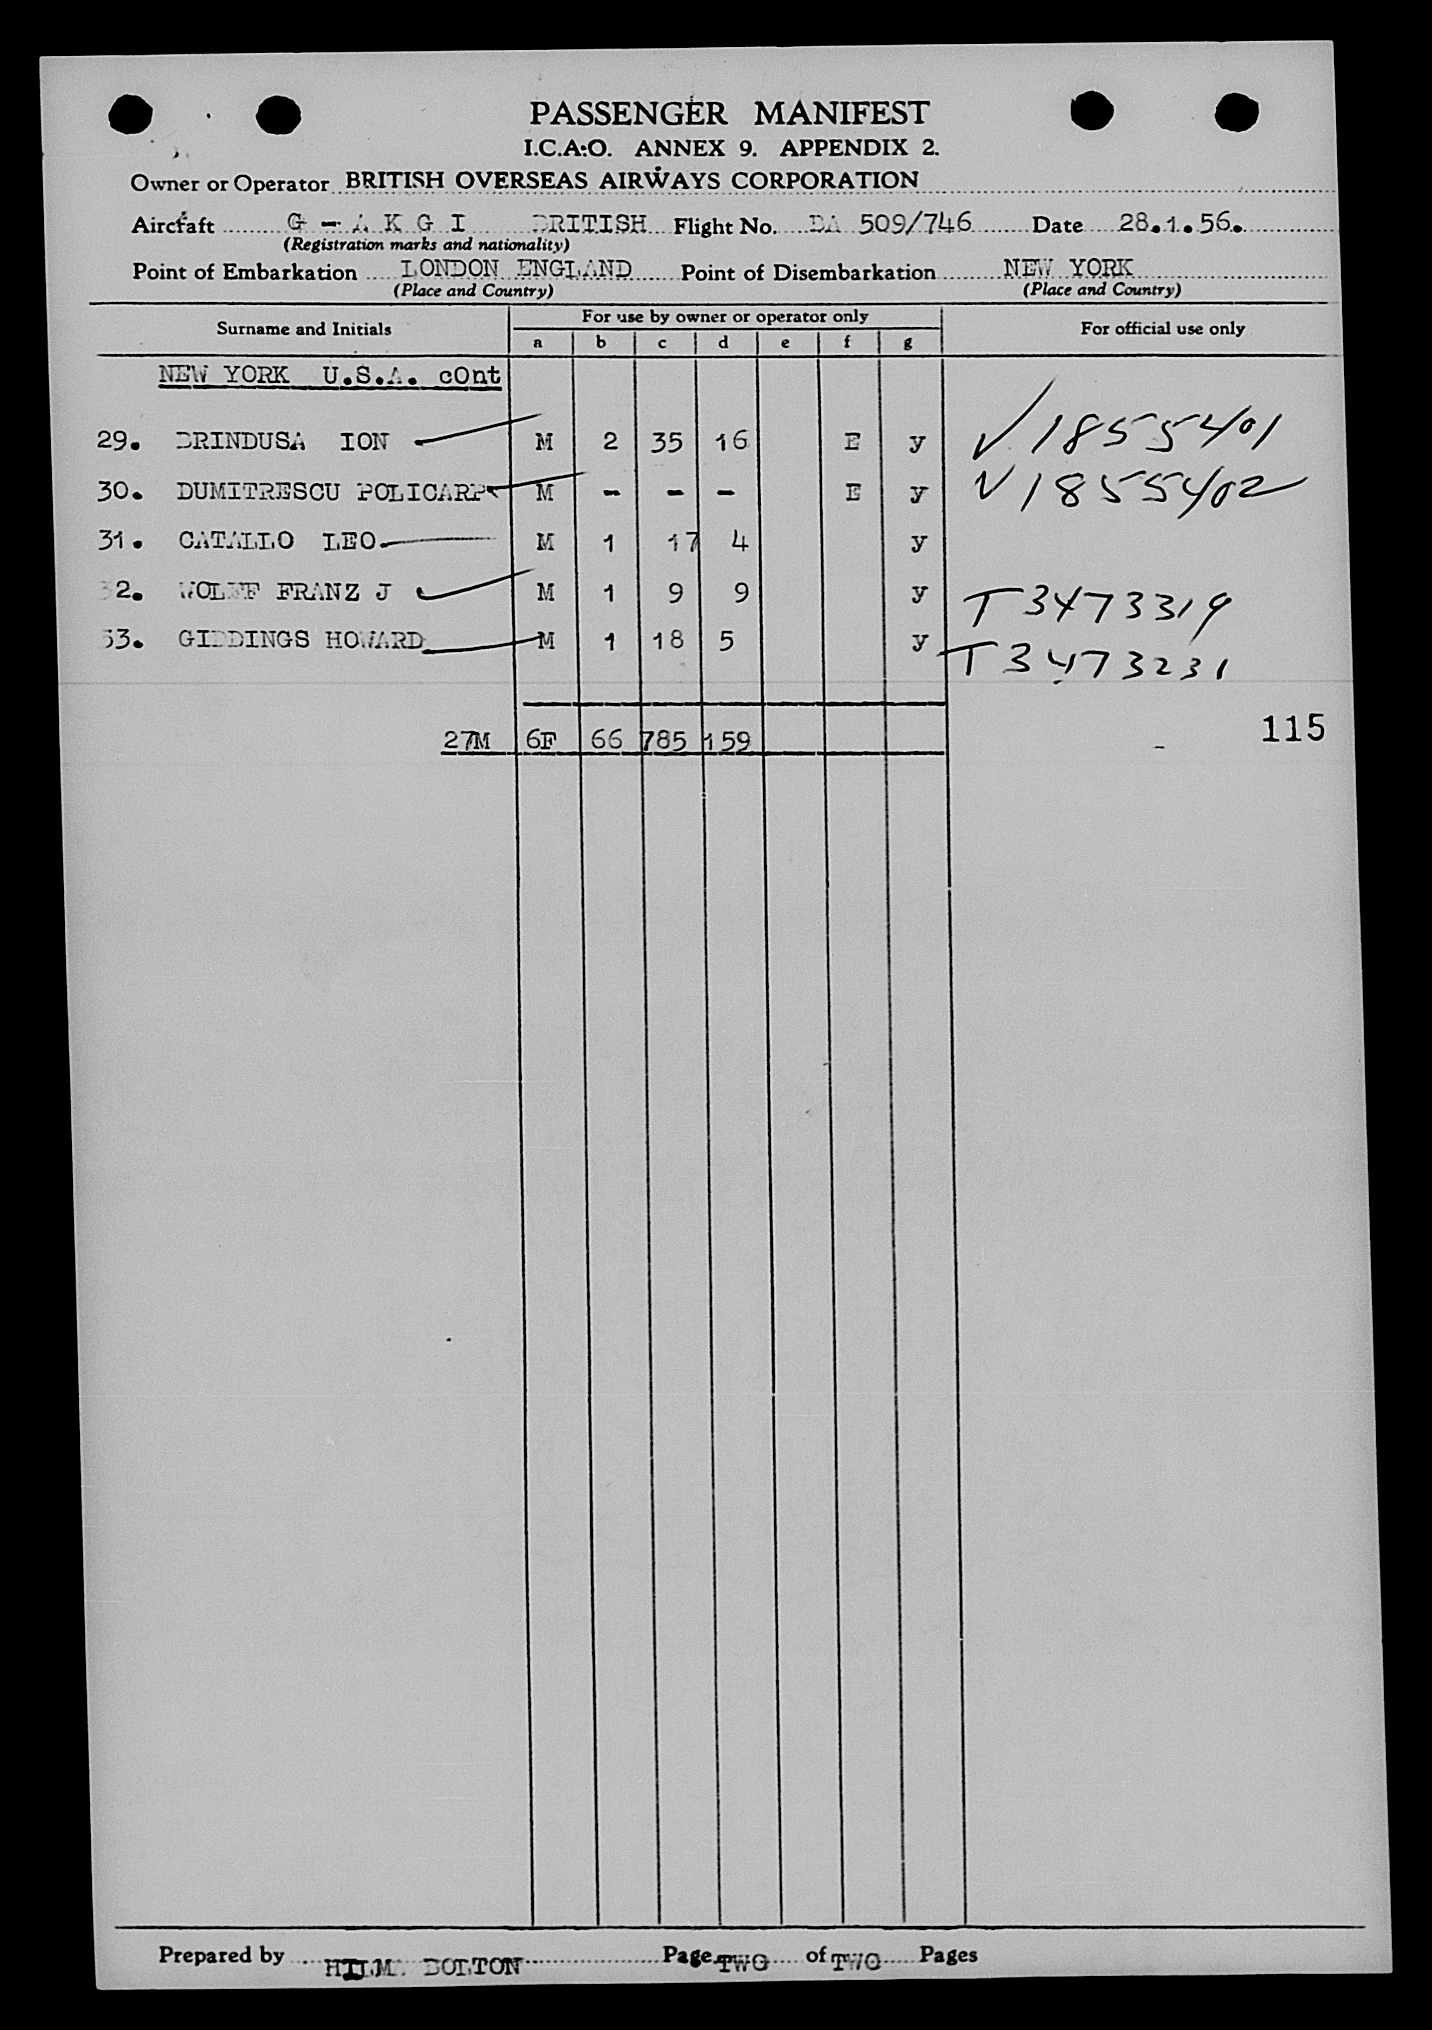 PASSENGER MANIFEST
I.C.A.O. ANNEX 9. APPENDIX 2.
Owner or Operator BRITISH OVERSEAS AIRWAYS CORPORATION
Aircraft G - A K G I BRITISH Flight No. BA 509/746 Date 28.1.56.
(Registration marks and nationality)
Point of Embarkation LONDON ENGLAND Point of Disembarkation NEW YORK
(Place and Country) (Place and Country)
Surname and Initials For use by owner or operator only For official use only
a b c d e f g
NEW YORK U.S.A. cOnt
29. BRINDUSA ION M 2 35 16 E y V 1855401
30. DUMITRESCU POLICARP M - - - E y V 1855402
31. CATALLO LEO M 1 17 4 y
32. WOLFF FRANZ J M 1 9 9 y T 3473319
33. GIDDINGS HOWARD M 1 18 5 y T 3473231
27M 6F 66 785 159 115
Prepared by BOLTON Page TWO of TWO Pages